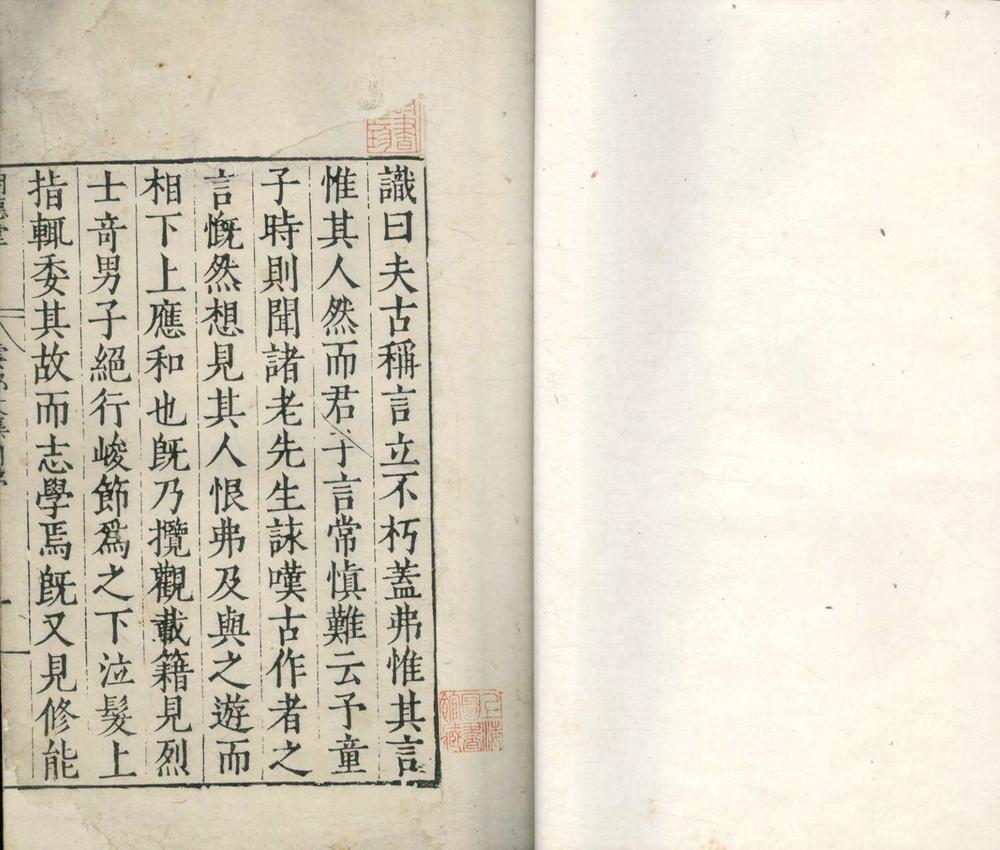 識曰夫古稱言立不朽蓋弗惟其言
惟其人然而君子言常慎難云予童
子時則聞諸老先生誄嘆古作者之
言慨然想見其人恨弗及與之遊而
相下上應和也既乃攬觀載籍見烈
士奇男子絕行峻節爲之下泣髮上
指輒委其故而志學焉既又見修能
上海圖書館藏